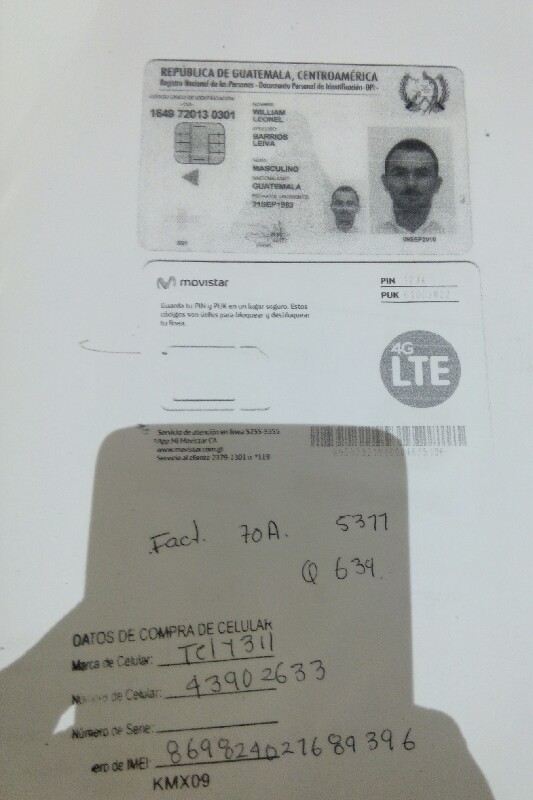 REPÚBLICA DE GUATEMALA, CENTROAMÉRICA
Registro Nacional de las Personas - Documento Personal de Identificación -DPI-
1649 72013 0301
NOMBRE
WILLIAM
LEONEL
BARRIOS
LEIVA
SEXO
MASCULINO
NACIONALIDAD
GUATEMALA
movistar
PIN
PUK
Guarda tu PIN y PUK en un lugar seguro. Estos
códigos son útiles para bloquear y desbloquear
tu línea.
4G
LTE
Servicio de atención en línea
App Mi Movistar CA
www.movistar.com.gt
Servicio al cliente 2379-2301 o *119
Fact. 70A. 5377
Q 639.
DATOS DE COMPRA DE CELULAR
Marca de Celular:
Número de Celular: 43902633
Número de Serie:
ero de IMEI: 869824027689396
KMX09